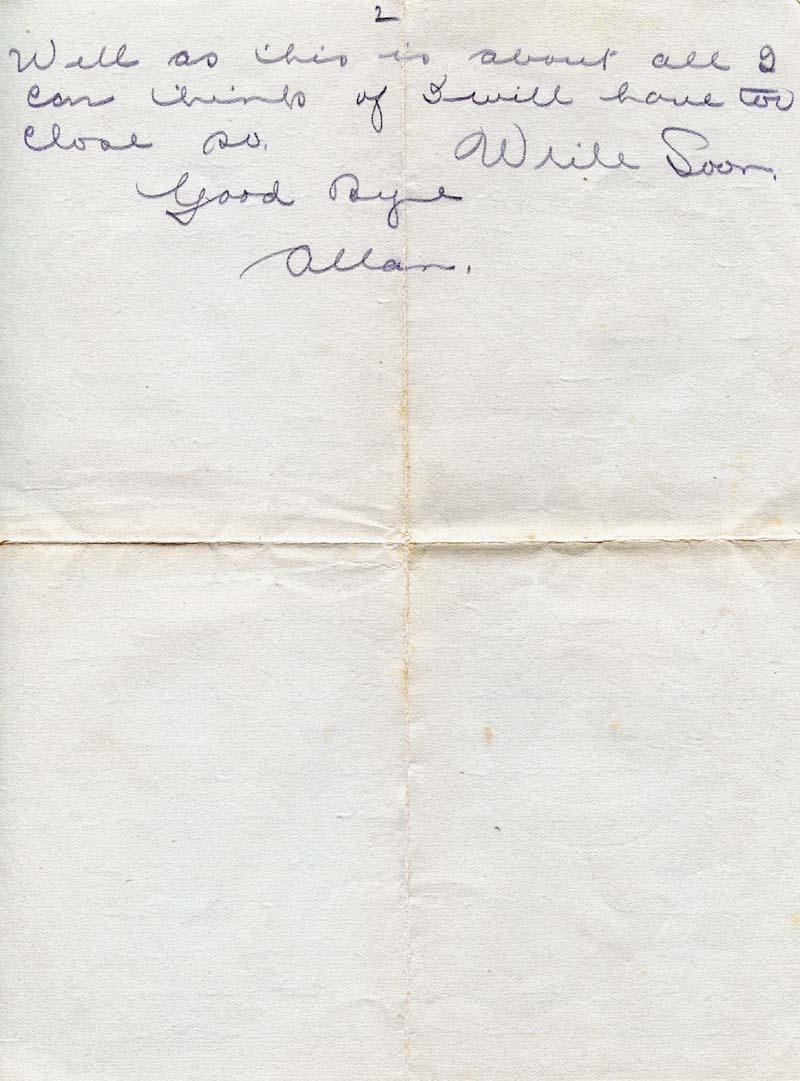 2
Well as this is about all I
can think of I will have too
close so. Write Soon.
Good Bye
Allan.